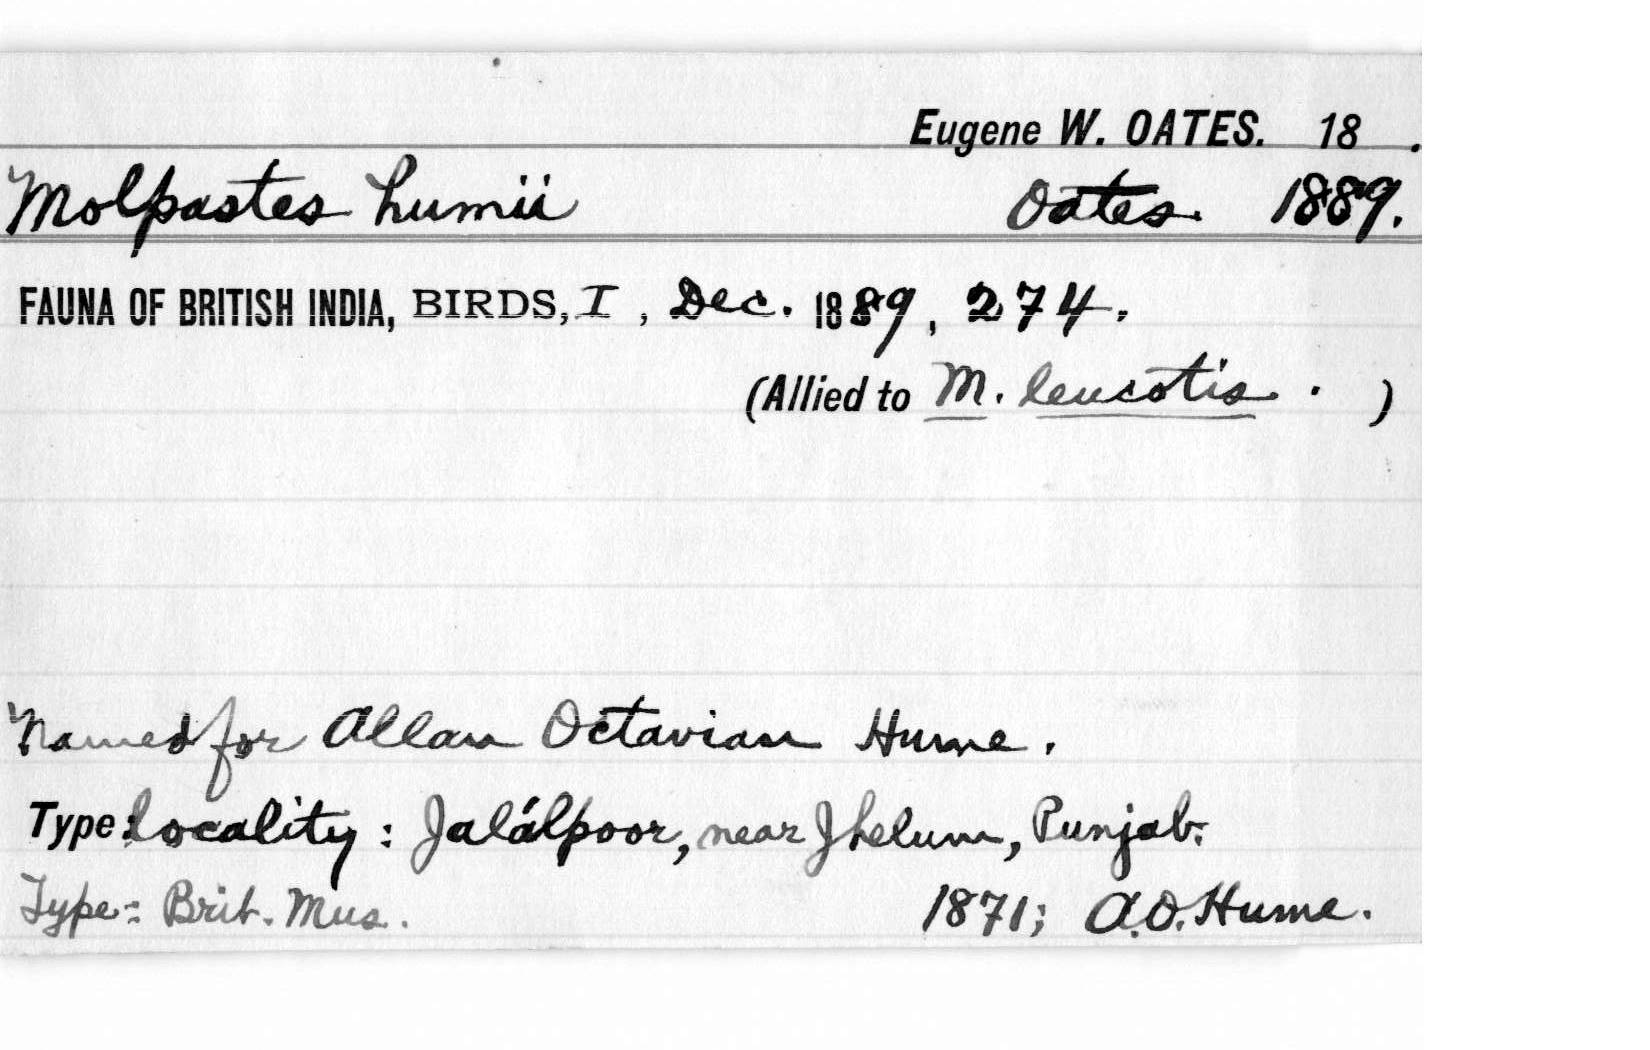 Eugene W. OATES. 18 .
Molpastes humii Oates. 1889.
FAUNA OF BRITISH INDIA, BIRDS, I, Dec. 1889, 274.
(Allied to M. leucotis. )
Named for Allan Octavian Hume.
Type: locality: Jalálpoor, near Jhelum, Punjab.
Type: Brit. Mus. 1871; A.O. Hume.